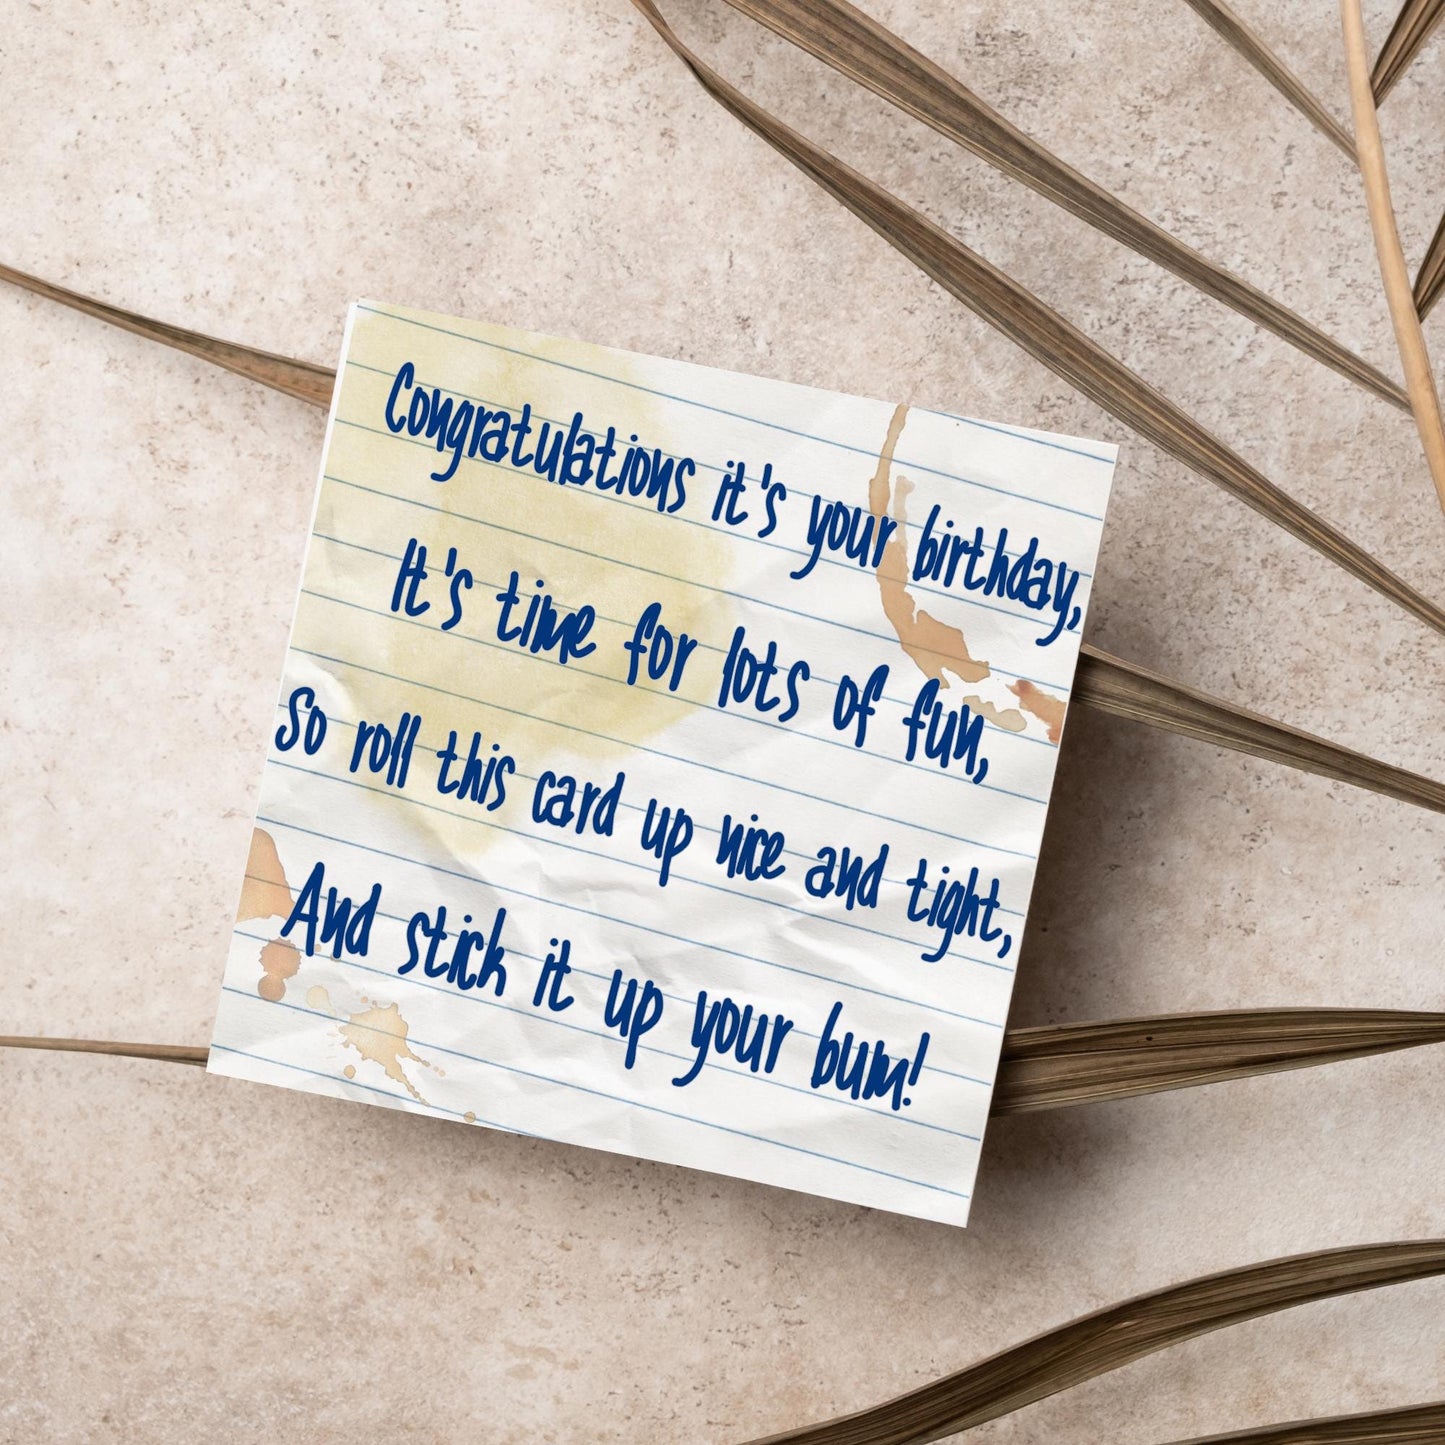 Congratulations it's your birthday,
It's time for lots of fun,
So roll this card up nice and tight,
And stick it up your bum!